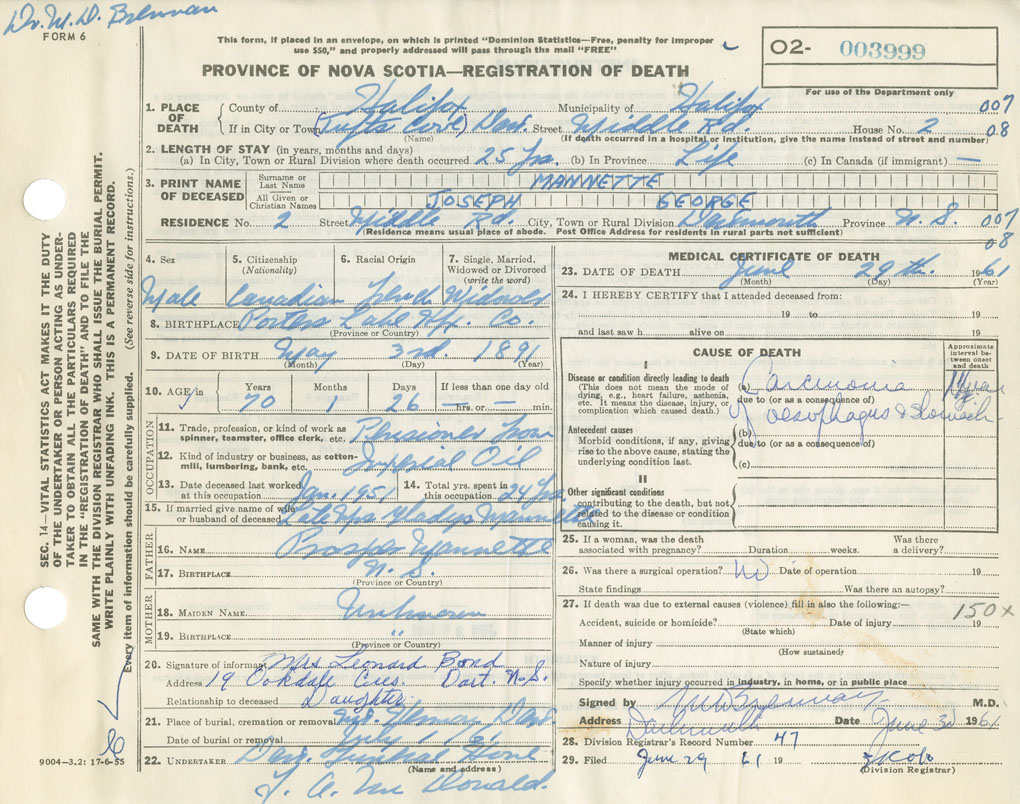 Dr. M. D. Brennan
FORM 6
This form, if placed in an envelope, on which is printed "Dominion Statistics—Free, penalty for improper
use $50," and properly addressed will pass through the mail "FREE"
O2- 003999
For use of the Department only
PROVINCE OF NOVA SCOTIA—REGISTRATION OF DEATH
1. PLACE OF DEATH
County of Halifax Municipality of Halifax 007
If in City or Town (Tufts Cove) Dart. Street Middle Rd. House No. 2 08
(Name) (If death occurred in a hospital or institution, give the name instead of street and number)
2. LENGTH OF STAY (in years, months and days)
(a) In City, Town or Rural Division where death occurred 25 Yrs. (b) In Province Life (c) In Canada (if immigrant) —
3. PRINT NAME OF DECEASED
Surname or Last Name MANNETTE
All Given or Christian Names JOSEPH GEORGE
RESIDENCE No. 2 Street Middle Rd. City, Town or Rural Division Dartmouth Province N.S. 007
08
(Residence means usual place of abode. Post Office Address for residents in rural parts not sufficient)
4. Sex 5. Citizenship (Nationality) 6. Racial Origin 7. Single, Married, Widowed or Divorced (write the word)
Male Canadian French Widower
8. BIRTHPLACE Porters Lake Hfx. Co.
(Province or Country)
9. DATE OF BIRTH May 3rd. 1891
(Month) (Day) (Year)
10. AGE in Years Months Days If less than one day old
70 1 26 — hrs. or — min.
OCCUPATION
11. Trade, profession, or kind of work as spinner, teamster, office clerk, etc. Pensioner from
12. Kind of industry or business, as cotton-mill, lumbering, bank, etc. Imperial Oil
13. Date deceased last worked at this occupation Jan. 1951 14. Total yrs. spent in this occupation 24 Yrs.
15. If married give name of wife or husband of deceased Late Mrs Gladys Mannette
FATHER
16. NAME Prosper Mannette
17. BIRTHPLACE N.S.
(Province or Country)
MOTHER
18. MAIDEN NAME Unknown
19. BIRTHPLACE "
(Province or Country)
20. Signature of informant Mrs Leonard Bond
Address 19 Oakdale Cres. Dart. N.S.
Relationship to deceased Daughter
21. Place of burial, cremation or removal Mt. Dart
Date of burial or removal July 1
22. UNDERTAKER Dart. Funeral Home
(Name and address)
F. A. Mc Donald.
MEDICAL CERTIFICATE OF DEATH
23. DATE OF DEATH June 29th. 1961
(Month) (Day) (Year)
24. I HEREBY CERTIFY that I attended deceased from:
19 to 19
and last saw h alive on 19
CAUSE OF DEATH
Approximate interval between onset and death
I
Disease or condition directly leading to death
(This does not mean the mode of dying, e.g., heart failure, asthenia, etc. It means the disease, injury, or complication which caused death.)
(a) Carcinoma
due to (or as a consequence of)
oesophagus & stomach
Antecedent causes
Morbid conditions, if any, giving rise to the above cause, stating the underlying condition last.
(b)
due to (or as a consequence of)
(c)
II
Other significant conditions
contributing to the death, but not related to the disease or condition causing it.
25. If a woman, was the death associated with pregnancy? Duration weeks. Was there a delivery?
26. Was there a surgical operation? No Date of operation 19
State findings Was there an autopsy?
27. If death was due to external causes (violence) fill in also the following:— 150x
Accident, suicide or homicide? Date of injury 19
(State which)
Manner of injury
(How sustained)
Nature of injury
Specify whether injury occurred in industry, in home, or in public place
Signed by M D Brennan M.D.
Address Dartmouth Date June 30 1961
28. Division Registrar's Record Number 47
29. Filed June 29 61 19
(Division Registrar)
SEC. 14—VITAL STATISTICS ACT MAKES IT THE DUTY
OF THE UNDERTAKER OR PERSON ACTING AS UNDER-
TAKER TO OBTAIN ALL THE PARTICULARS REQUIRED
IN THE "REGISTRATION OF DEATH" AND TO FILE THE
SAME WITH THE DIVISION REGISTRAR WHO SHALL ISSUE THE BURIAL PERMIT.
WRITE PLAINLY WITH UNFADING INK. THIS IS A PERMANENT RECORD.
Every item of information should be carefully supplied. (See reverse side for instructions.)
9004-3.2: 17-6-55